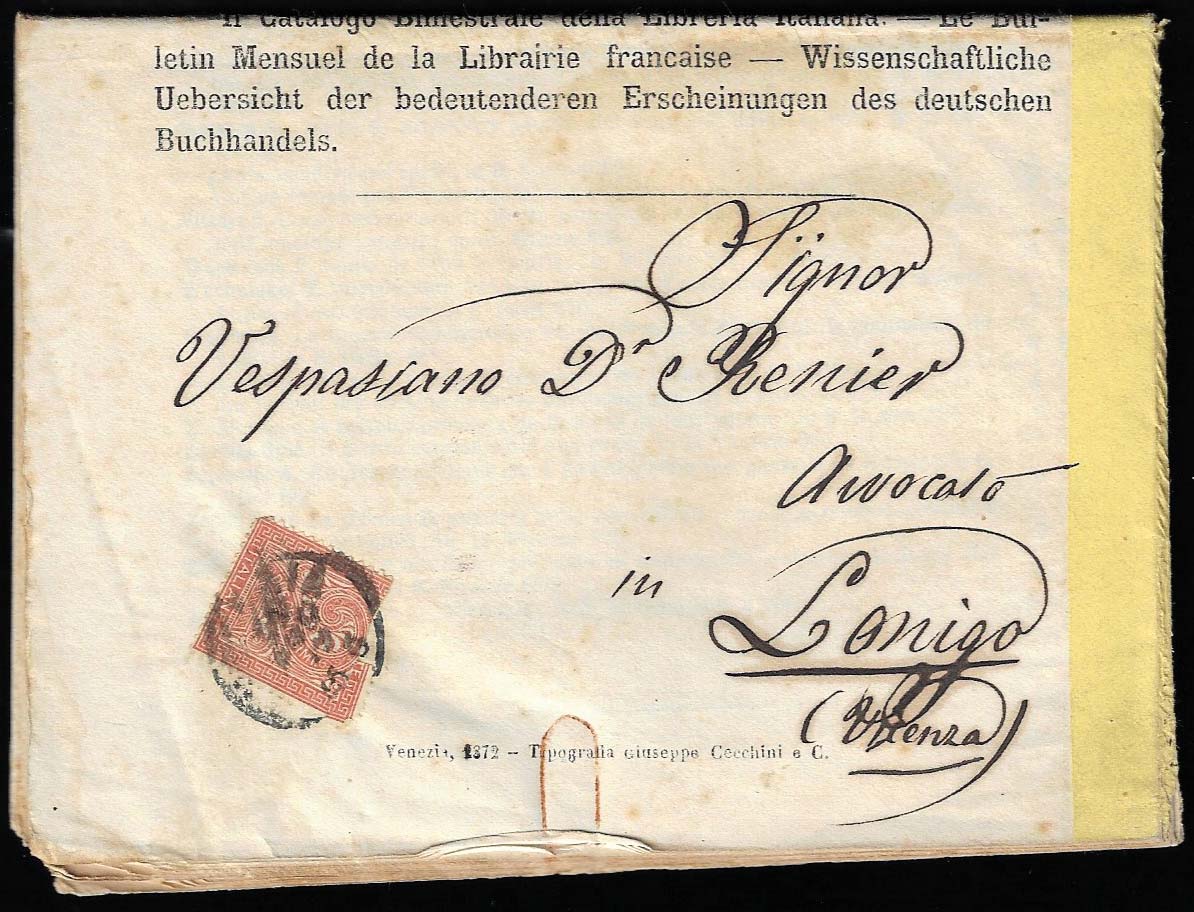 Il Catalogo Bimestrale della Libreria Italiana. — Le Bul-
letin Mensuel de la Librairie francaise — Wissenschaftliche
Uebersicht der bedeutenderen Erscheinungen des deutschen
Buchhandels.
Signor
Vespasiano Dr Renier
Avvocato
in Lonigo
(Vicenza)
Venezia, 1872 – Tipografia Giuseppe Cecchini e C.